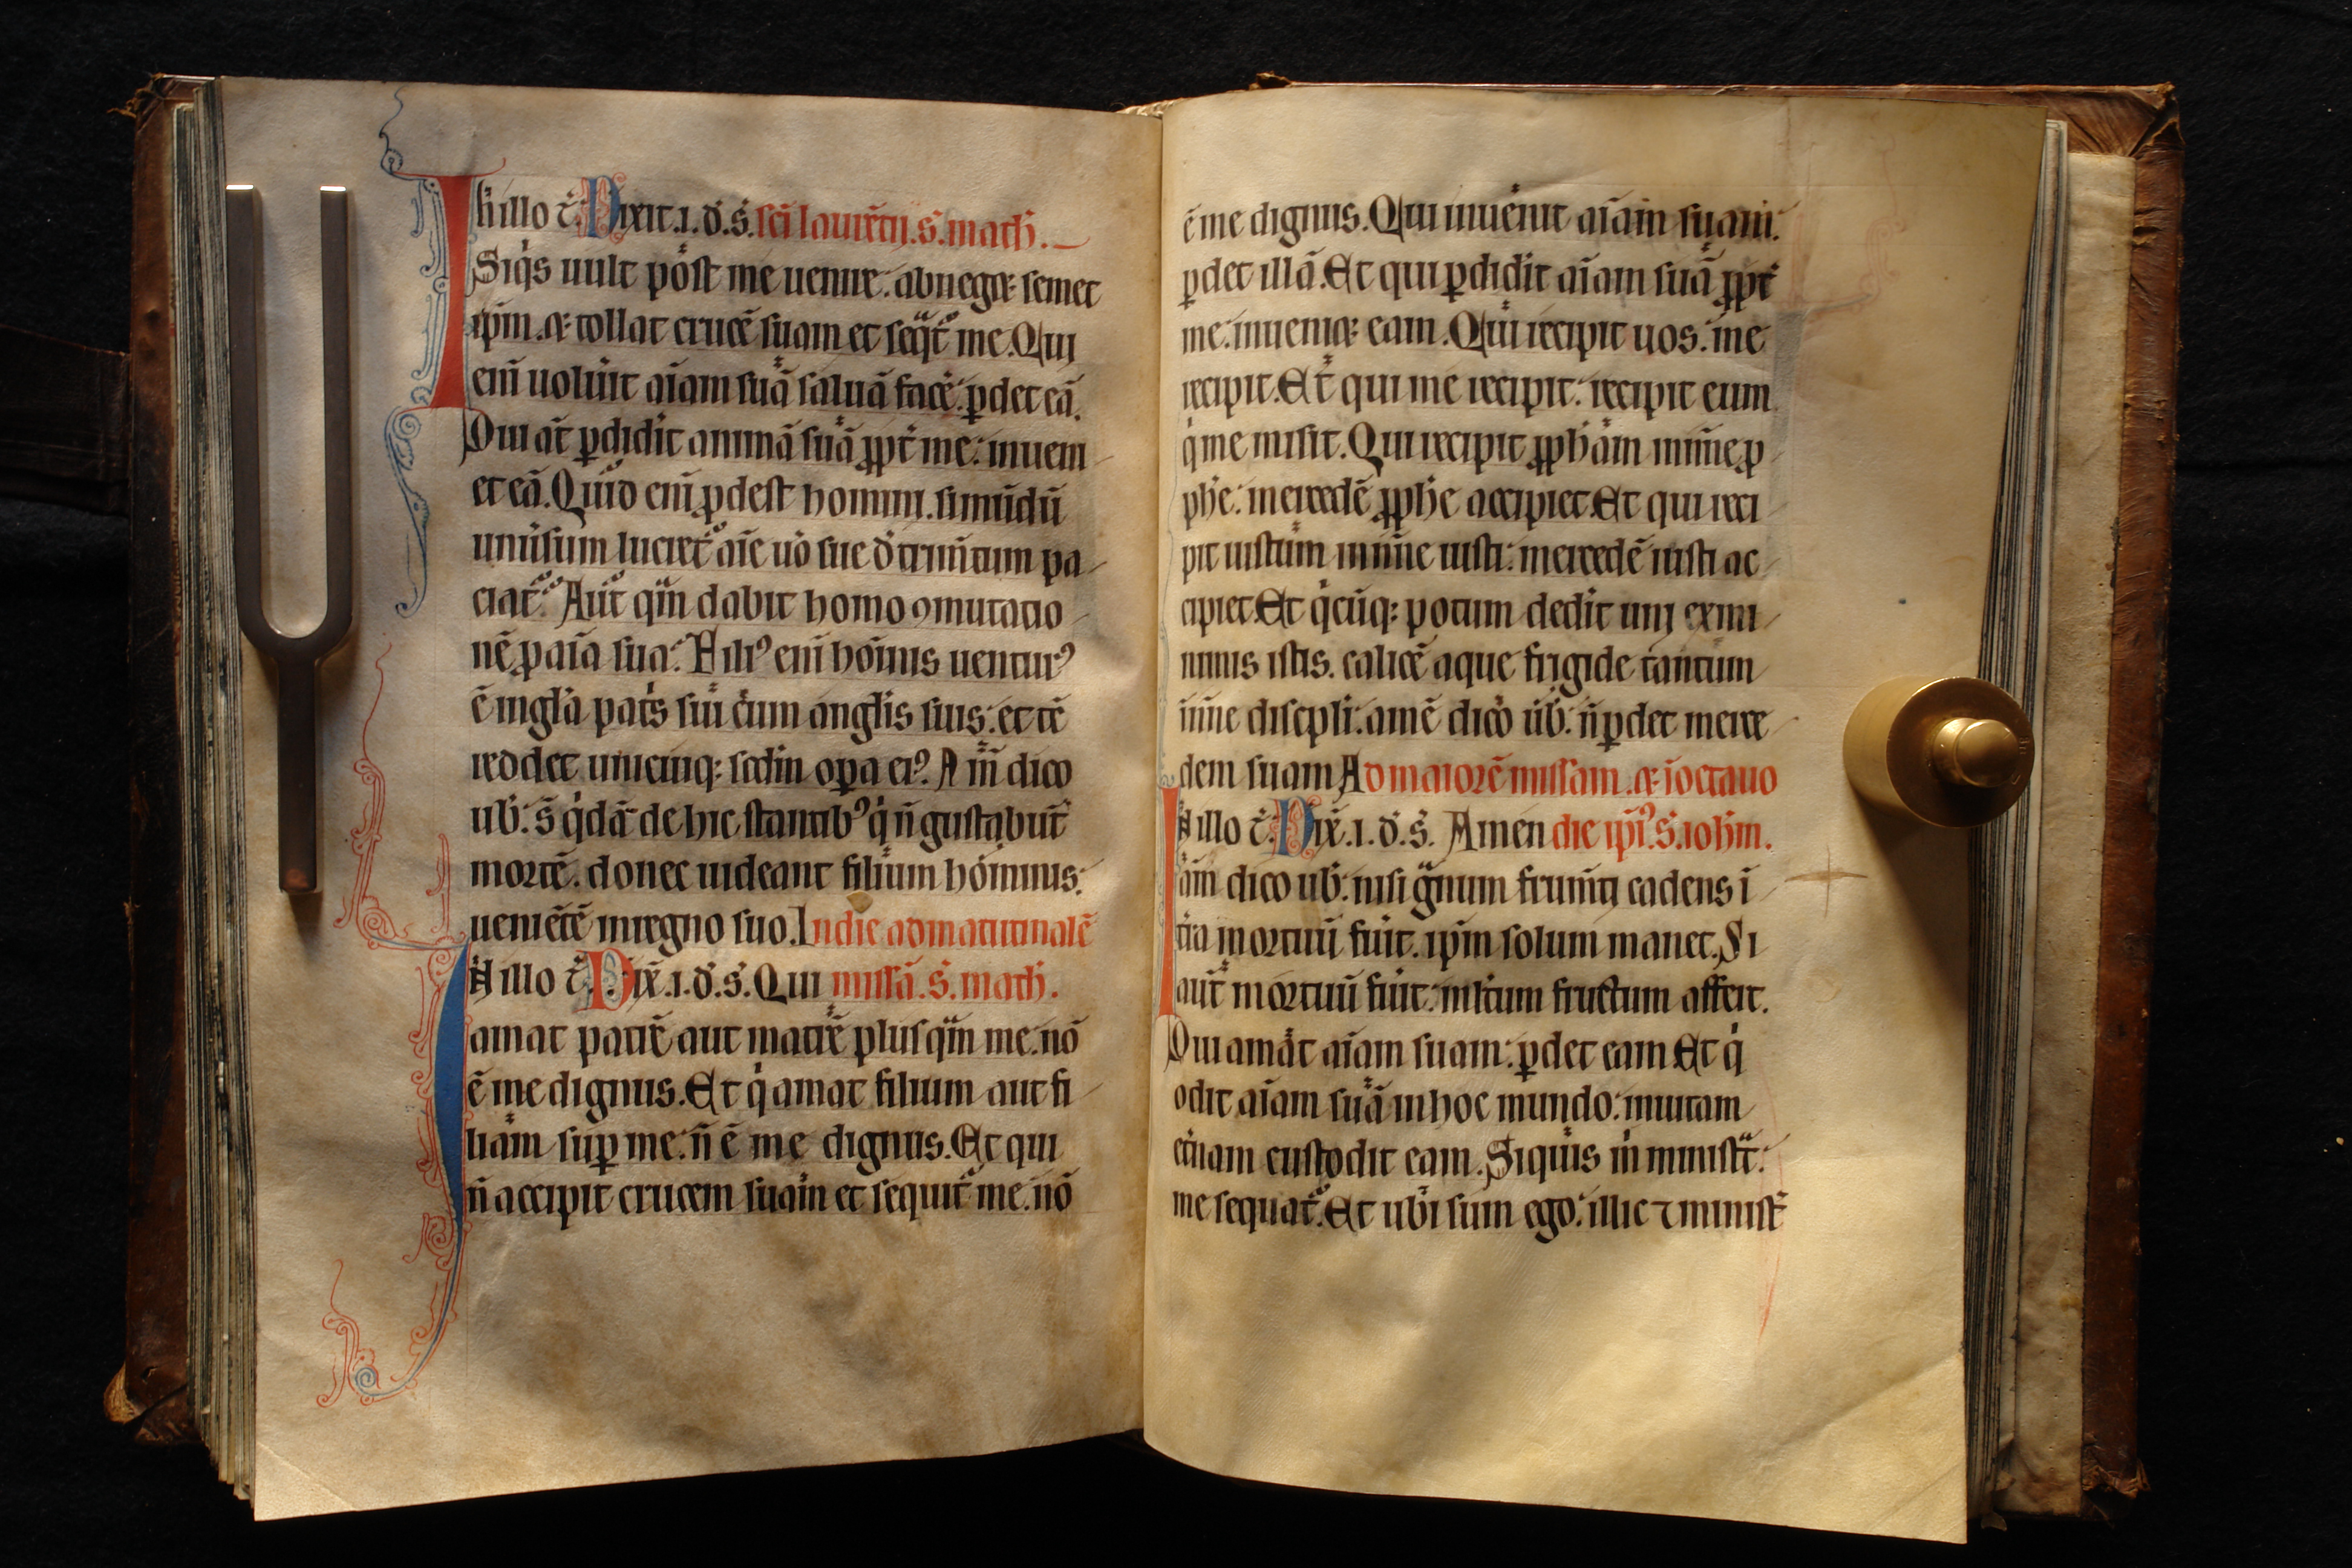 In illo t̄. Dixit .i. d̓. s̓. sc̄i laurētij. s̓. math̓.
Siq̓s uult post me uenire: abneget semet
ip̄m. et tollat crucē suam et seq̄t᷑ me. Qui
enī uolu̓it aīam suā saluā face̓: ꝑdet eā.
Qui aūt ꝑdidit animā suā ꝓpt̓ me: inueni
et eā. Quid enī ꝓdest homini. si mūdū
uniu̓sum lucret᷑ aīe uo̓ sue det̓mētum pa
ciat᷑. Aut qͣm dabit homo ꝯmutatio
nē ꝓ aīa sua: Filiꝰ enī hoīnis uenturꝰ
ē in gl̄a pat̓s sui cum angl̓is suis: et tē
reddet unicuiqꝫ scd̄m oꝑa eiꝰ. Am̄ dico
ub̓: s̄ q̓dā de hic stantibꝰ q̓ n̄ gustabūt
mortē. donec uideant filium hoīnis:
ueniētē in regno suo. In die ad matutinalē
In illo t̄. Dix̄ .i. d̓. s̓. Qui missā. s̓. math̓.
amat patrē aut matrē plusqͣm me: nō
ē me dignus. Et q̓ amat filium aut fi
liam suꝑ me: n̄ ē me dignus. Et qui
n̄ accipit crucem suam et sequit᷑ me: nō
ē me dignus. Qui inuenit aīam suam:
ꝑdet illā. Et qui ꝑdidit aīam suā ꝓpt̓
me: inueniet eam. Qui recipit uos: me
recipit. Et qui me recipit: recipit eum
q̓ me misit. Qui recipit ꝓph̓am in noīe ꝓ
ph̓e: mercedē ꝓph̓e accipiet. Et qui reci
pit iustum in noīe iusti: mercedē iusti ac
cipiet. Et q̓cūqꝫ potum dedit uni ex mi
nimis istis. calicē aque frigide tantum
in noīe discipl̓i: amē dico ub̓: n̄ ꝑdet merce
dem suam. Ad maiorē missam. et ī octauo
In illo t̄. Dix̄ .i. d̓. s̓. Amen die ip̄iꝰ. s̓. ioh̓m.
am̄ dico ub̓: nisi gͣnum frum̄ti cadens ī
t̓ra mortuū fu̓it. ip̄m solum manet. Si
aūt mortuū fu̓it: ml̓tum fructum affert.
Qui amat aīam suam: ꝑdet eam. Et q̓
odit aīam suā in hoc mundo: in uitam
et̓nam custodit eam. Siquis m̓ ministͣt:
me sequat᷑. Et ubi sum ego: illic ⁊ minist̓